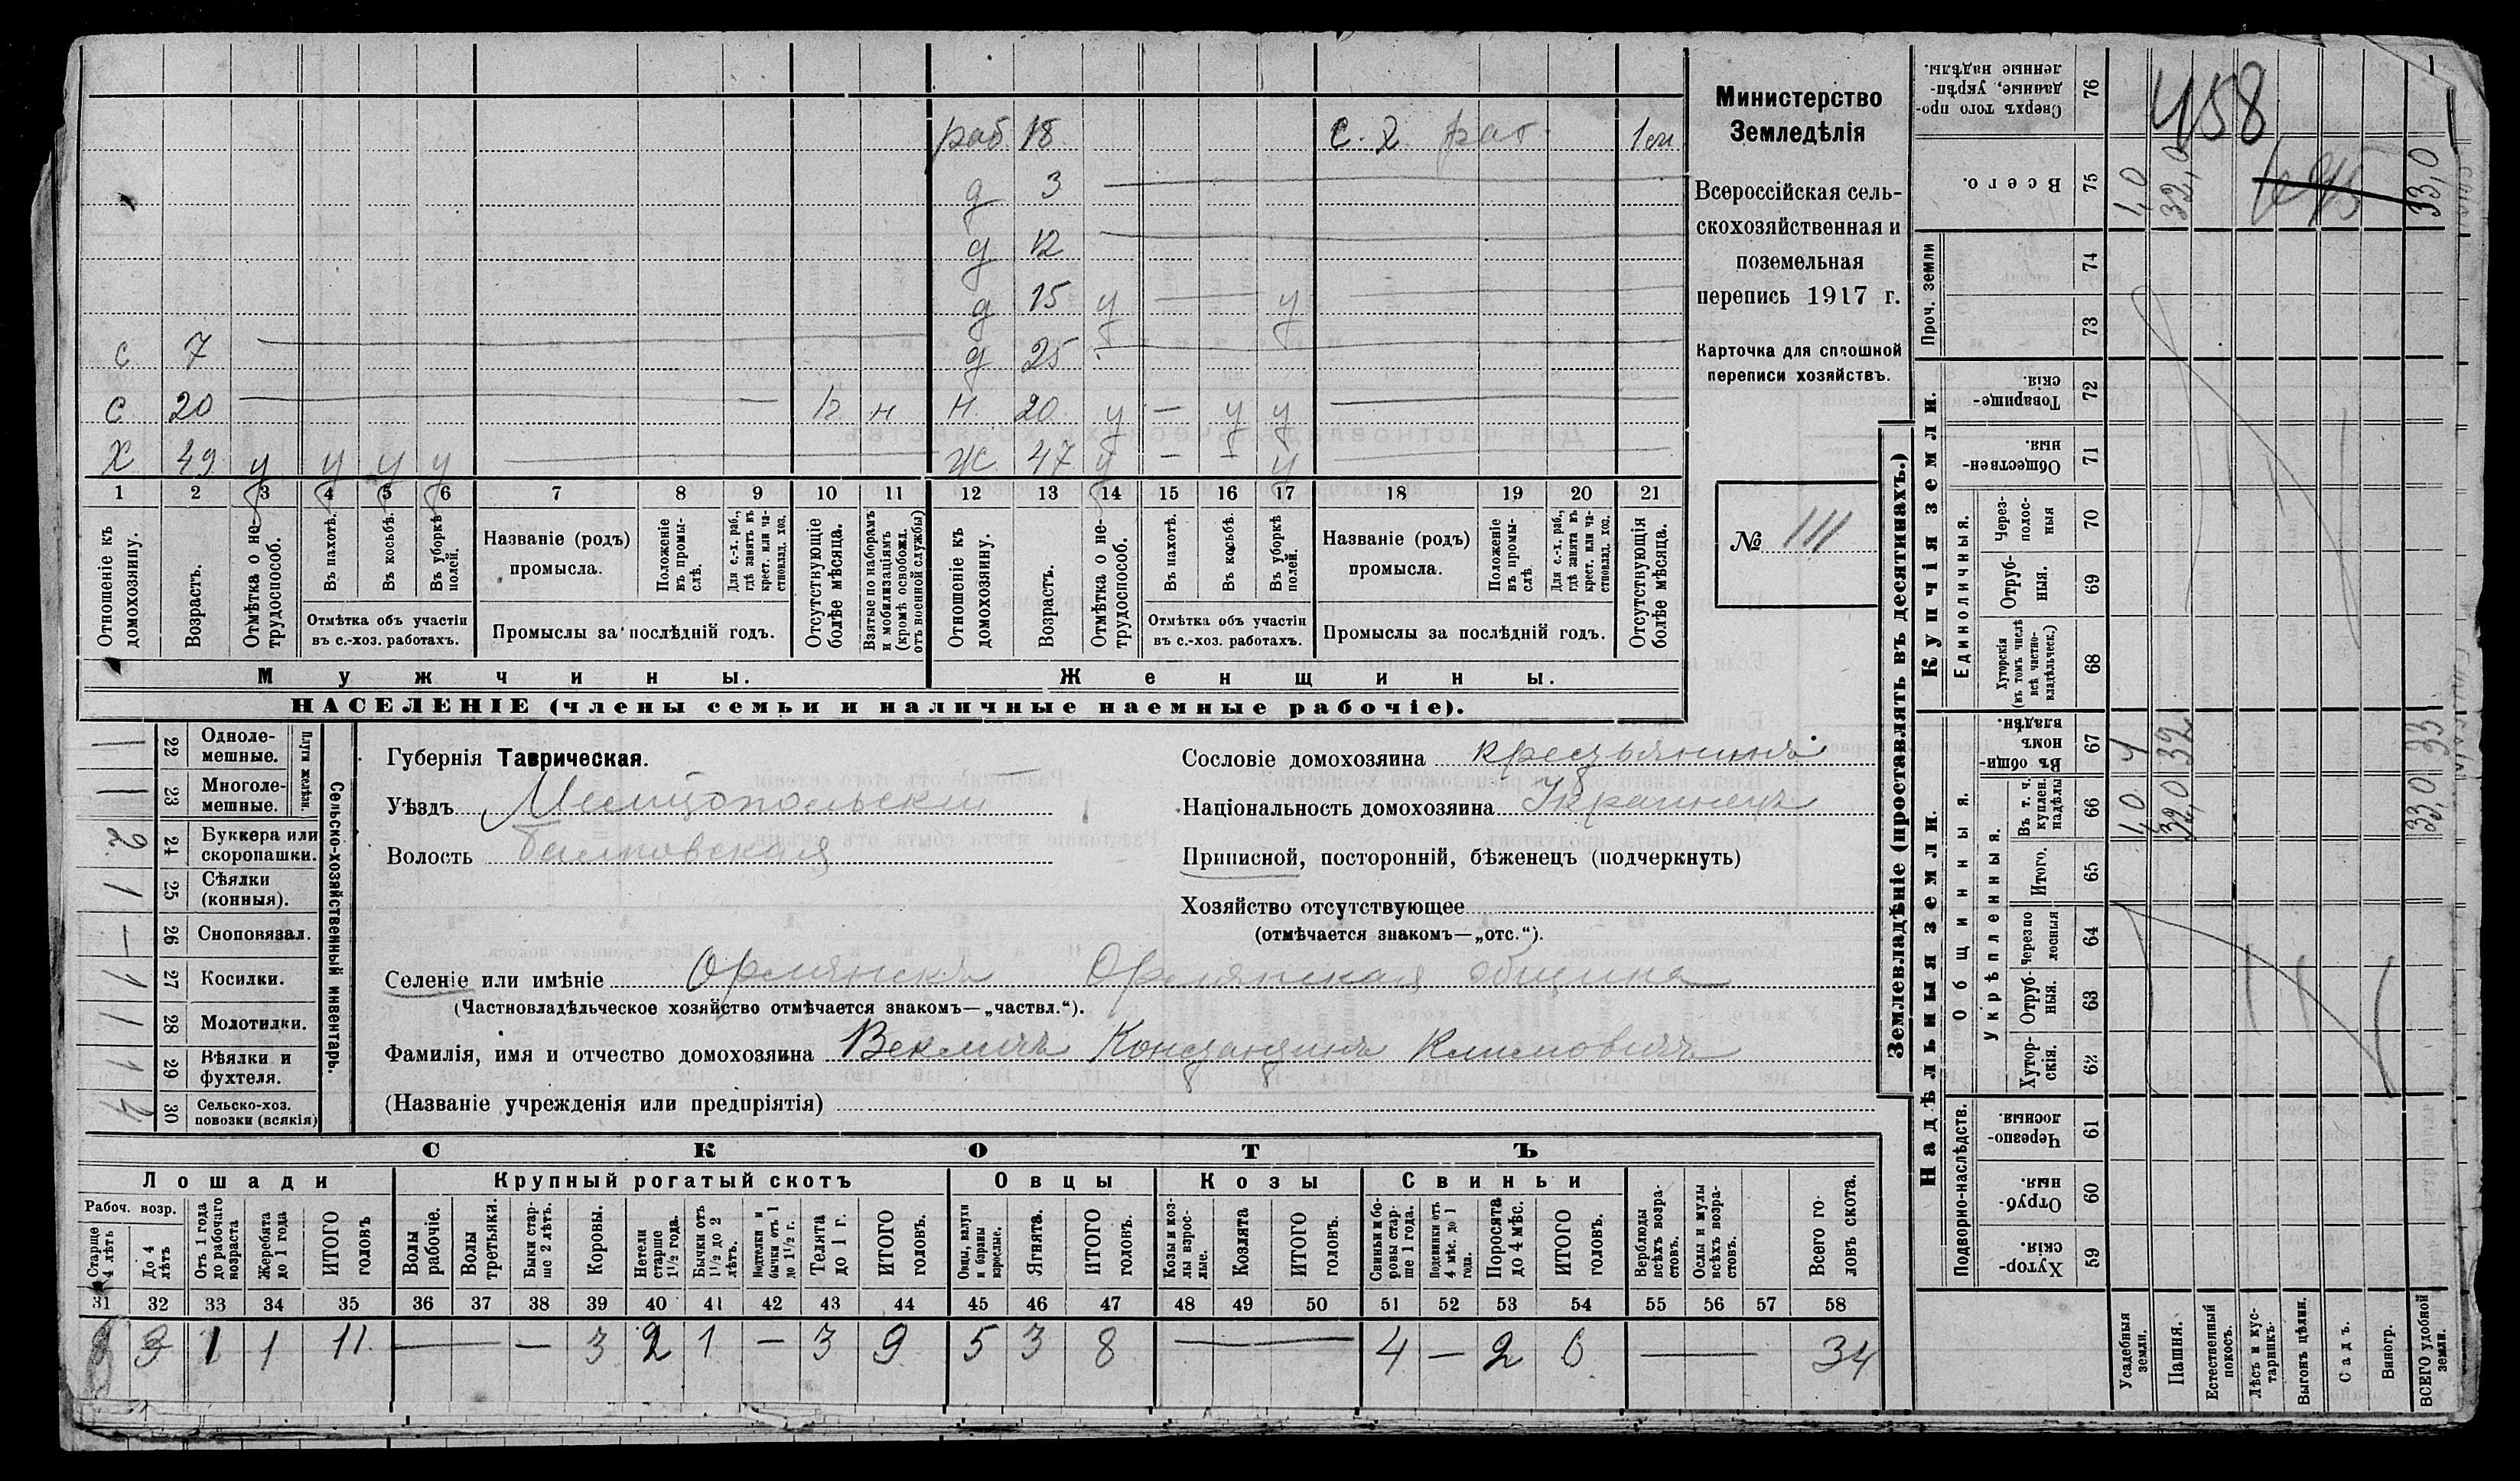 раб 18 С. Х. раб. 1 м
д 3
д 12
д 15 у — у
С 7 д 25
С 20 12 н Н. 20 у — у у
Х 49 у у у у Ж. 47 у — — у
1 2 3 4 5 6 7 8 9 10 11 12 13 14 15 16 17 18 19 20 21
Отношеніе къ домохозяину.
Возрастъ.
Отмѣтка о нетрудоспособ.
Въ пахотѣ.
Въ косьбѣ.
Въ уборкѣ полей.
Отмѣтка объ участіи въ с.-хоз. работахъ.
Названіе (родъ) промысла.
Положеніе въ промыслѣ.
Для с.-х. раб., гдѣ занятъ въ крест. или частновлад. хоз.
Промыслы за послѣдній годъ.
Отсутствующіе болѣе мѣсяца.
Взятые по наборамъ и мобилизаціямъ (кромѣ освобожд. отъ военной службы)
Отношеніе къ домохозяину.
Возрастъ.
Отмѣтка о нетрудоспособ.
Въ пахотѣ.
Въ косьбѣ.
Въ уборкѣ полей.
Отмѣтка объ участіи въ с.-хоз. работахъ.
Названіе (родъ) промысла.
Положеніе въ промыслѣ
Для с.-х. раб., гдѣ занята въ крест. или частновлад. хоз.
Промыслы за послѣдній годъ.
Отсутствующія болѣе мѣсяца.
Мужчины.
Женщины.
НАСЕЛЕНІЕ (члены семьи и наличные наемные рабочіе).
Министерство
Земледѣлія
Всероссійская сель-
скохозяйственная и
поземельная
перепись 1917 г.
Карточка для сплошной
переписи хозяйствъ.
№ 111
Сельско-хозяйственный инвентарь.
Плуги желѣзн.
1 22 Одноле-
мешные.
1 23 Многоле-
мешные.
2 24 Буккера или
скоропашки.
1 25 Сѣялки
(конныя).
— 26 Сноповязал.
1 27 Косилки.
1 28 Молотилки.
1 29 Вѣялки и
фухтеля.
30 Сельско-хоз.
повозки (всякія)
Губернія Таврическая.
Уѣздъ Мелитопольскій
Волость
Сословіе домохозяина крестьянинъ
Національность домохозяина Украинецъ
Приписной, посторонній, бѣженецъ (подчеркнуть)
Хозяйство отсутствующее
(отмѣчается знакомъ—„отс.“).
Селеніе или имѣніе Орлянскъ Орлянская община
(Частновладѣльческое хозяйство отмѣчается знакомъ—„частвл.“).
Фамилія, имя и отчество домохозяина Векличъ Константинъ Климовичъ
(Названіе учрежденія или предпріятія)
СКОТЪ
Лошади
Крупный рогатый скотъ
Овцы
Козы
Свиньи
Рабоч. возр.
Старше 4 лѣтъ
До 4 лѣтъ
Отъ 1 года до рабочаго возраста
Жеребята до 1 года
ИТОГО головъ
Волы рабочіе.
Волы третьяки.
Быки старше 2 лѣтъ.
Коровы.
Нетели старше 1½ года.
Бычки отъ 1½ до 2 лѣтъ.
Подтелки и бычки отъ 1 до 1½ г.
Телята до 1 г.
ИТОГО головъ.
Овцы, валухи и бараны взрослые.
Ягнята.
ИТОГО головъ.
Козы и козлы взрослые.
Козлята
ИТОГО головъ.
Свиньи и боровы старше 1 года.
Подсвинки отъ 4 мѣс. до 1 года.
Поросята до 4 мѣс.
ИТОГО головъ.
Верблюды всѣхъ возрастовъ.
Ослы и мулы всѣхъ возрастовъ.
Всего головъ скота.
31 32 33 34 35 36 37 38 39 40 41 42 43 44 45 46 47 48 49 50 51 52 53 54 55 56 57 58
3 1 1 11 — — 3 2 1 — 3 9 5 3 8 — 4 — 2 6 — 34
Землевладѣніе (проставлять въ десятинахъ.)
Купчія земли.
Надѣльныя земли.
Сверхъ того проданные, укрѣпленные надѣлы. 76
458
Всего. 75 1,0 32,0 33,0
Проч. земли
74
73
Товарищескія. 72
Общественныя. 71
Единоличныя.
Черезполосныя 70
Отрубныя. 69
Хуторскія (въ томъ числѣ всѣ частновладѣльческ.) 68
Общинныя.
Въ общинномъ владѣн. 67 1 32 33
Укрѣпленныя.
Въ т. ч. куплен. надѣлы 66 1,0 32,0 33,0
Итого. 65
Черезполосныя 64
Отрубныя. 63
Хуторскія. 62
Подворно-наслѣдств.
Черезполосныя 61
Отрубныя. 60
Хуторскія. 59
Усадебныя земли.
Пашня.
Естественный покосъ.
Лѣсъ и кустарникъ.
Выгонъ цѣлин.
Садъ.
Виногр.
ВСЕГО удобной земли.